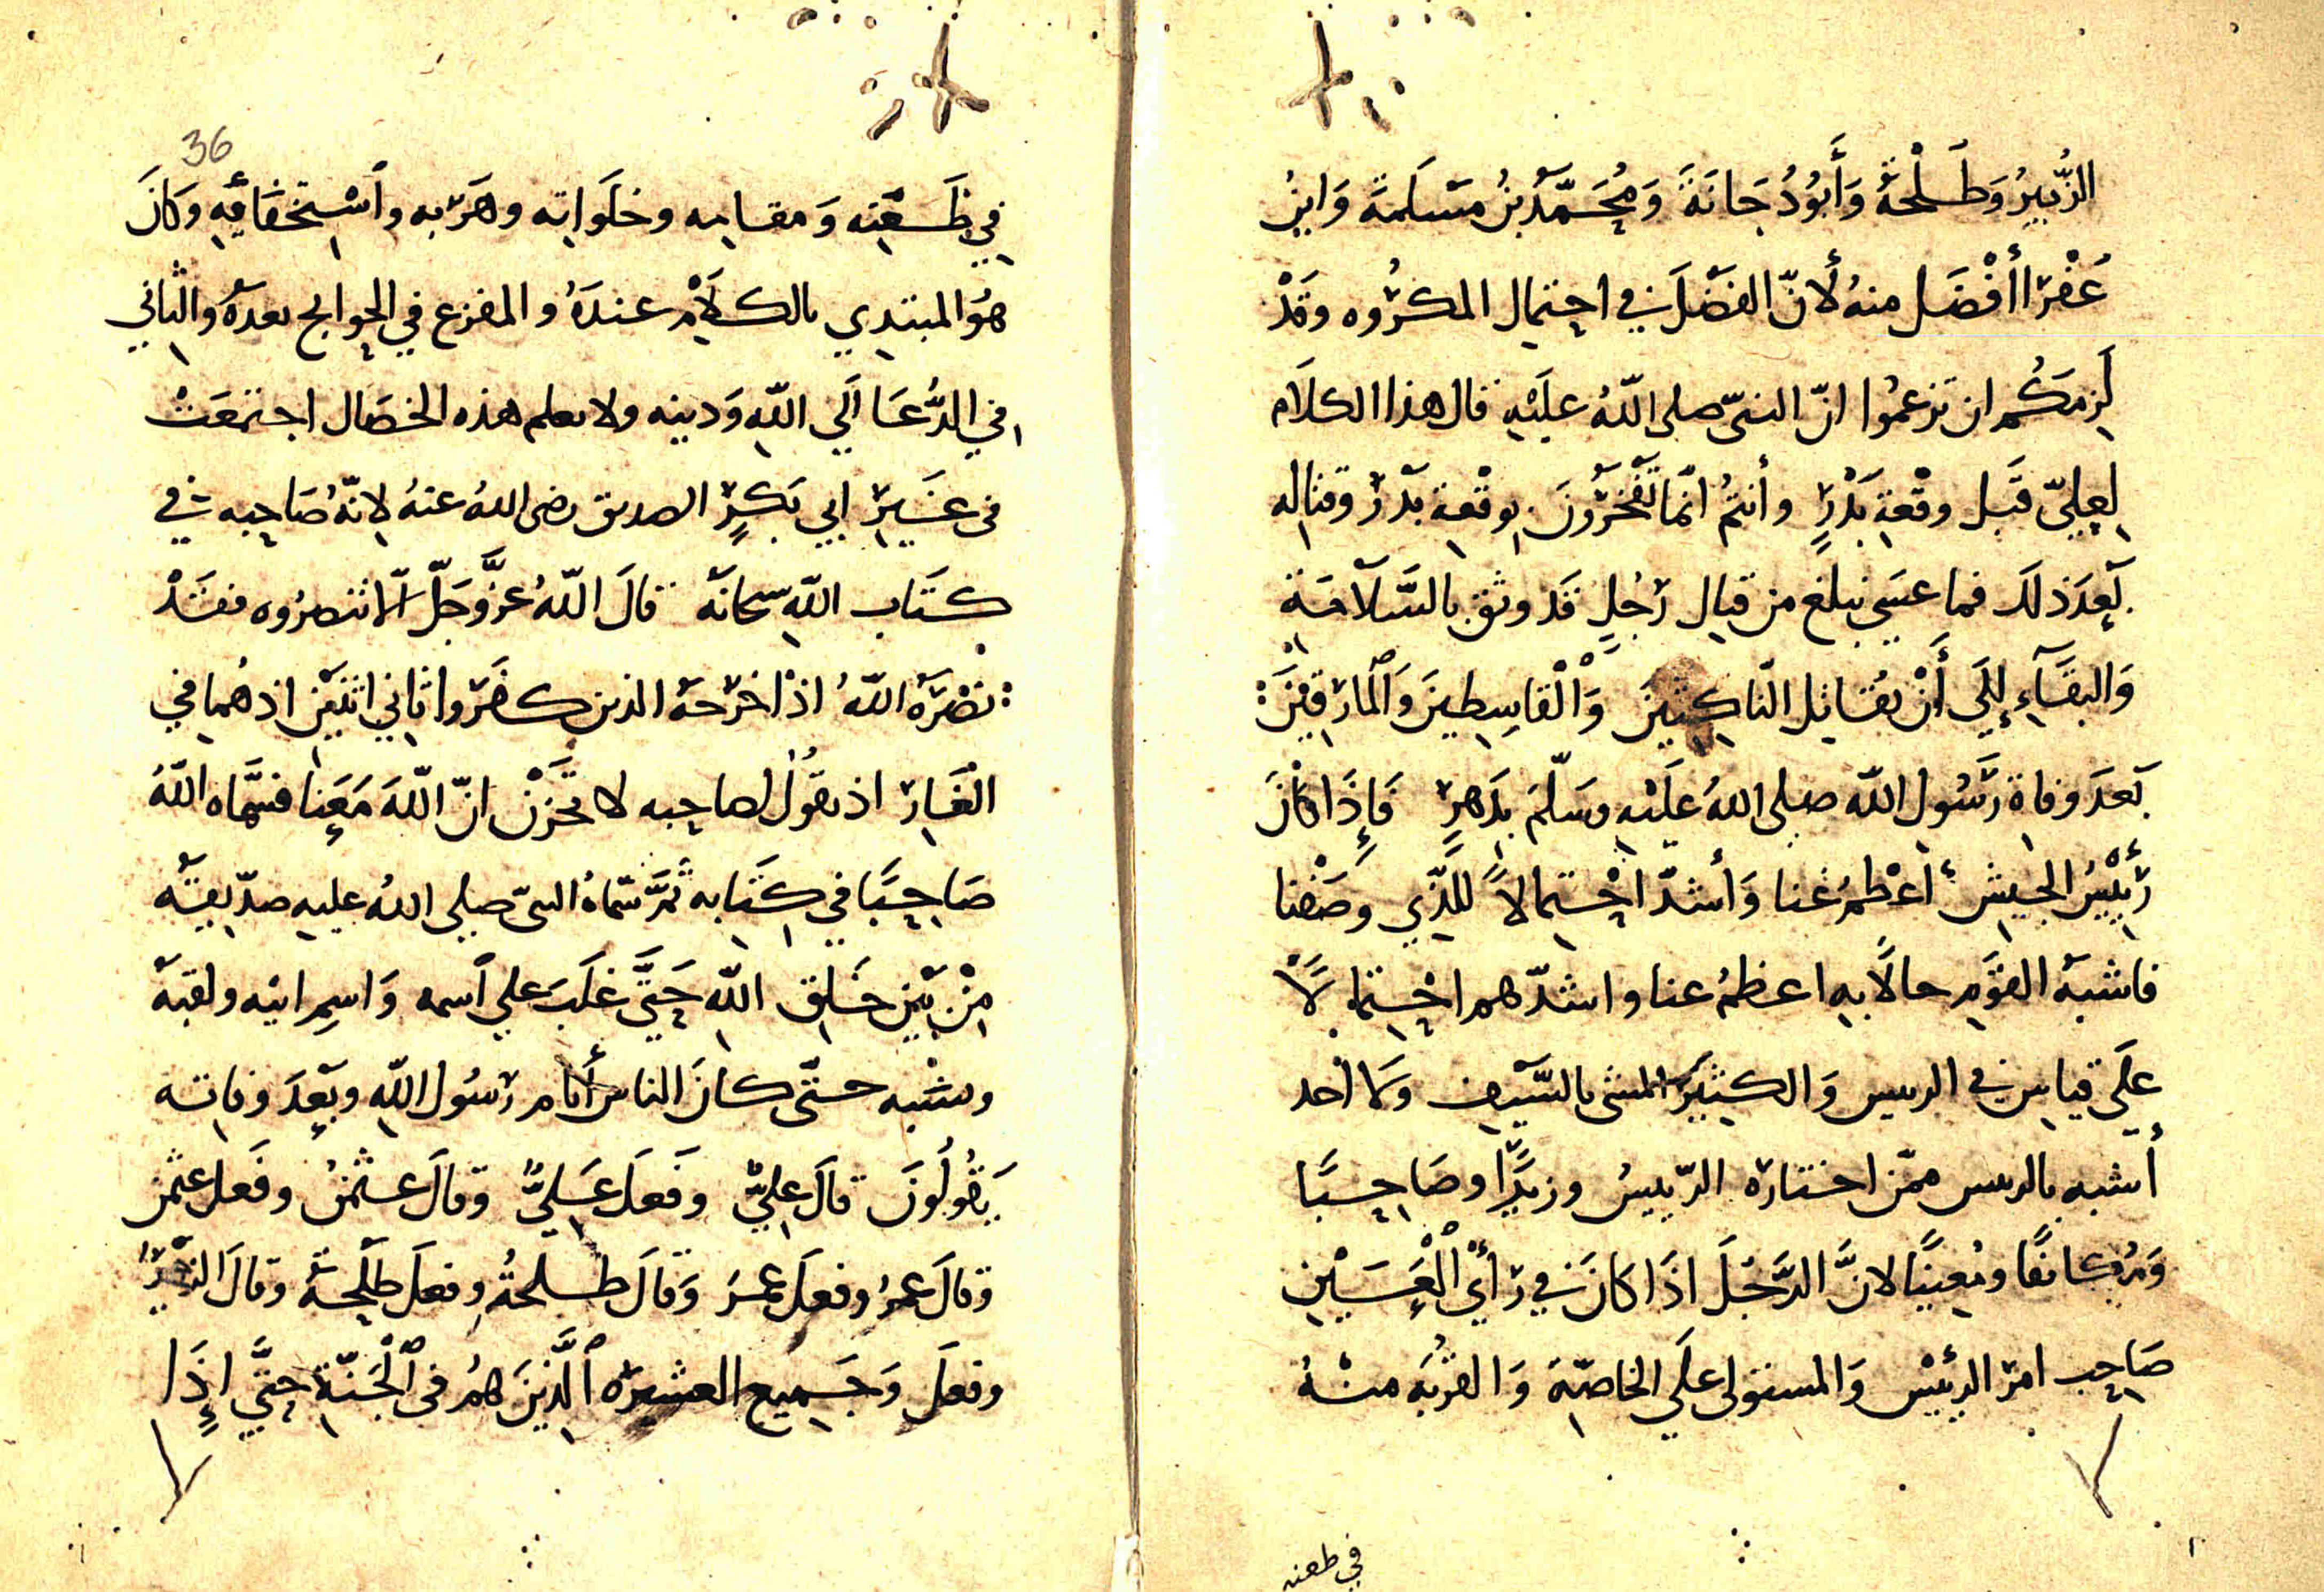 الزُّبيرُ وَطَلْحَةُ وَأَبُو دُجَانَةَ وَمُحَمَّدُ بنُ مَسْلَمَةَ وَابنُ
عَفْرَا أفْضَل منهُ لأنّ الفَضْلَ في احتِمال المكرُوه وقَدْ
لَزِمَكُم ان تزعمُوا انّ النبىّ صلى اللّهُ عليْهِ قال هذا الكلَام
لِعِليّ قَبل وقْعَةِ بَدْرٍ وأنتمُ انّما تَفْخَرُونَ بِوقْعةِ بَدْرٍ وقتالِه
بَعِدَ ذلكَ فما عسَى يبلغ من قتِال رَجُلٍ قَد وثق بالسَّلَامَةِ
وَالبقَآءِ إِلَى أَنْ يُقاتِل النّاكِثِينَ وَالْقاسِطِينَ وَالمارِقِينَ
بَعدَ وفاة رَسُول اللّه صلى اللهُ عَلَيْهِ وسَلّمَ بِدَهرٍ فَإِذَا كانَ
رَئِيْسُ الجيش أعْظمُ غنا وَأشدّ احْتِمالاً للّذِي وَصَفْنا
فاشبَهُ القوْمِ حالًا بهِ اعظمُ عنا واشدّهم احْتِمالًا
علَى قياسِ في الرييس وَالكثِيرَ المشى بالسَّيفِ ولا أحد
أشبه بالرييس ممّن اختارَه الرّييسُ وزيرًا وصَاحِبًا
وَمُكانفًا ومُعِينًا لانَّ الرَّجُلَ اذَا كانَ في رَأيِ الْعَيْنِ
صَاحِب امرَ الرئيْس وَالمستولى علَي الخاصّة وَالقرْبَه منْهُ
في طعنه
36
في ظَعْنِه وَمقامِه وخلَواتِه وهَرَبِه واسْتِخفَائِهِ وكانَ
هوَ المبتدِي بالكلَامْ عندَهُ والمفزع في الحِوايج بعدَهُ والثاني
في الدُّعَا الَي اللّهِ وَدينه ولا يعلم هذه الخصَال اجتمعَتْ
فى غَيرِ ابي بَكرٍ الصديق رضى اللهُ عنهُ لانّهُ صَاحِبه في
كتَاب اللّهِ سبحانَه قالَ اللّهُ عزَّ وجَلّ الّا تنصرُوه فقَدْ
نصَرَهُ اللّهُ اذْ اخرَجَهُ الذين كفَروا ثانِي اثنَيْنِ اذ هُما في
الْغَارِ اذ يقُولُ لصاحِبه لا تحْزَنْ انّ اللّهَ مَعَنِا فسمَّاه اللّهُ
صَاحِبًا في كِتَابه ثمَّ سمّاهُ النبىّ صلى اللهُ عليهِ صدّيقيتَه
مِنْ بَيْنِ خَلقِ اللّهِ حَتَّى غلَبَ علي اسمه وَاسمِ ابيْه ولقبَه
ونسْبه حتّى كانَ الناس أيام رَسُول اللّهِ وبَعِدَ وفاته
يَقُولُونَ قالَ عِليٌّ وفَعلَ عَلىٌّ وقالَ عثمنُ وفَعل عثمن
وقالَ عمرُ وفعلَ عمرُ وَقالَ طلحةُ وفعلَ طلْحَةُ وقالَ الزُبَيْرُ
وفعلَ وَجَمِيع العشِيرَه الَّذِينَ همُ فى الْجَنّةِ حتَّي اذَا